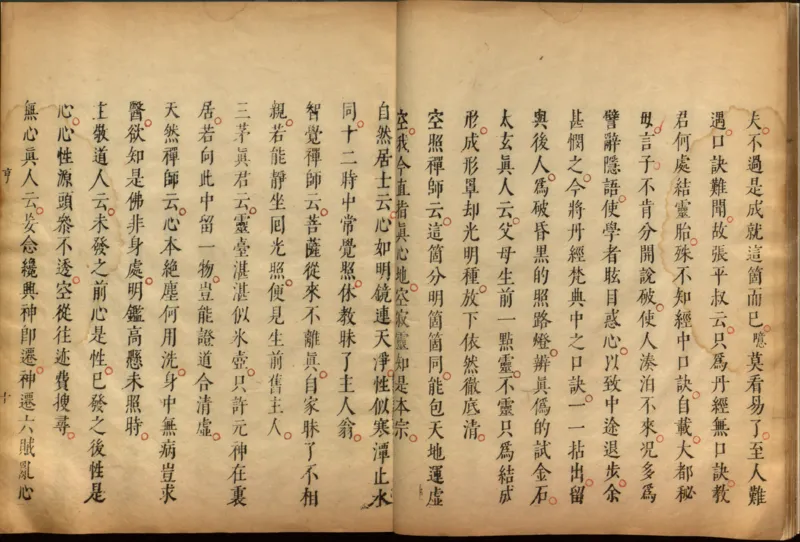 夫不過是成就這箇而已噫莫看易了至人難
遇口訣難聞故張平叔云只爲丹經無口訣教
君何處結靈胎殊不知經中口訣自載大都秘
母言子不肯分開說破使人湊泊不來况多爲
譬辭隱語使學者眩目惑心以致中途退步余
甚憫之今將丹經梵典中之口訣一一拈出留
與後人爲破昏黑的照路燈辨眞僞的試金石
太玄眞人云父母生前一點靈不靈只爲結成
形成形罩却光明種放下依然徹底清
空照禪師云這箇分明箇箇同能包天地運虛
空我今直指眞心地空寂靈知是本宗
自然居士云心如明鏡連天淨性似寒潭止水
同十二時中常覺照休教昧了主人翁
智覺禪師云菩薩從來不離眞自家昧了不相
親若能靜坐囘光照便見生前舊主人
三茅眞君云靈臺湛湛似氷壺只許元神在裏
居若向此中留一物豈能證道合清虛
天然禪師云心本絶塵何用洗身中無病豈求
醫欲知是佛非身處明鑑高懸未照時
主敬道人云未發之前心是性已發之後性是
心心性源頭叅不透空從往迹費搜尋
無心眞人云妄念纔興神卽遷神遷六賊亂心